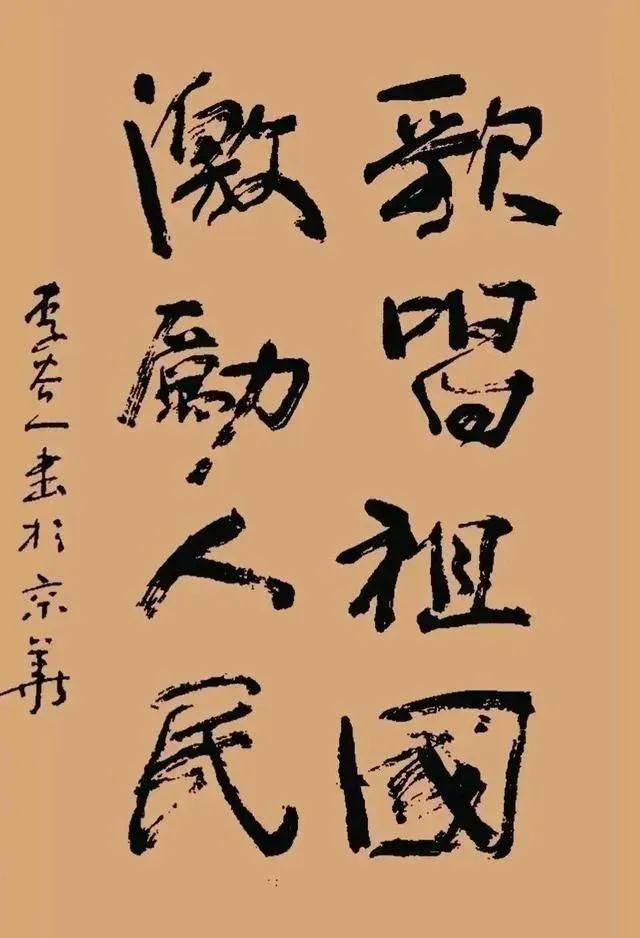 歌唱祖國
激勵人民
李谷人書於京華